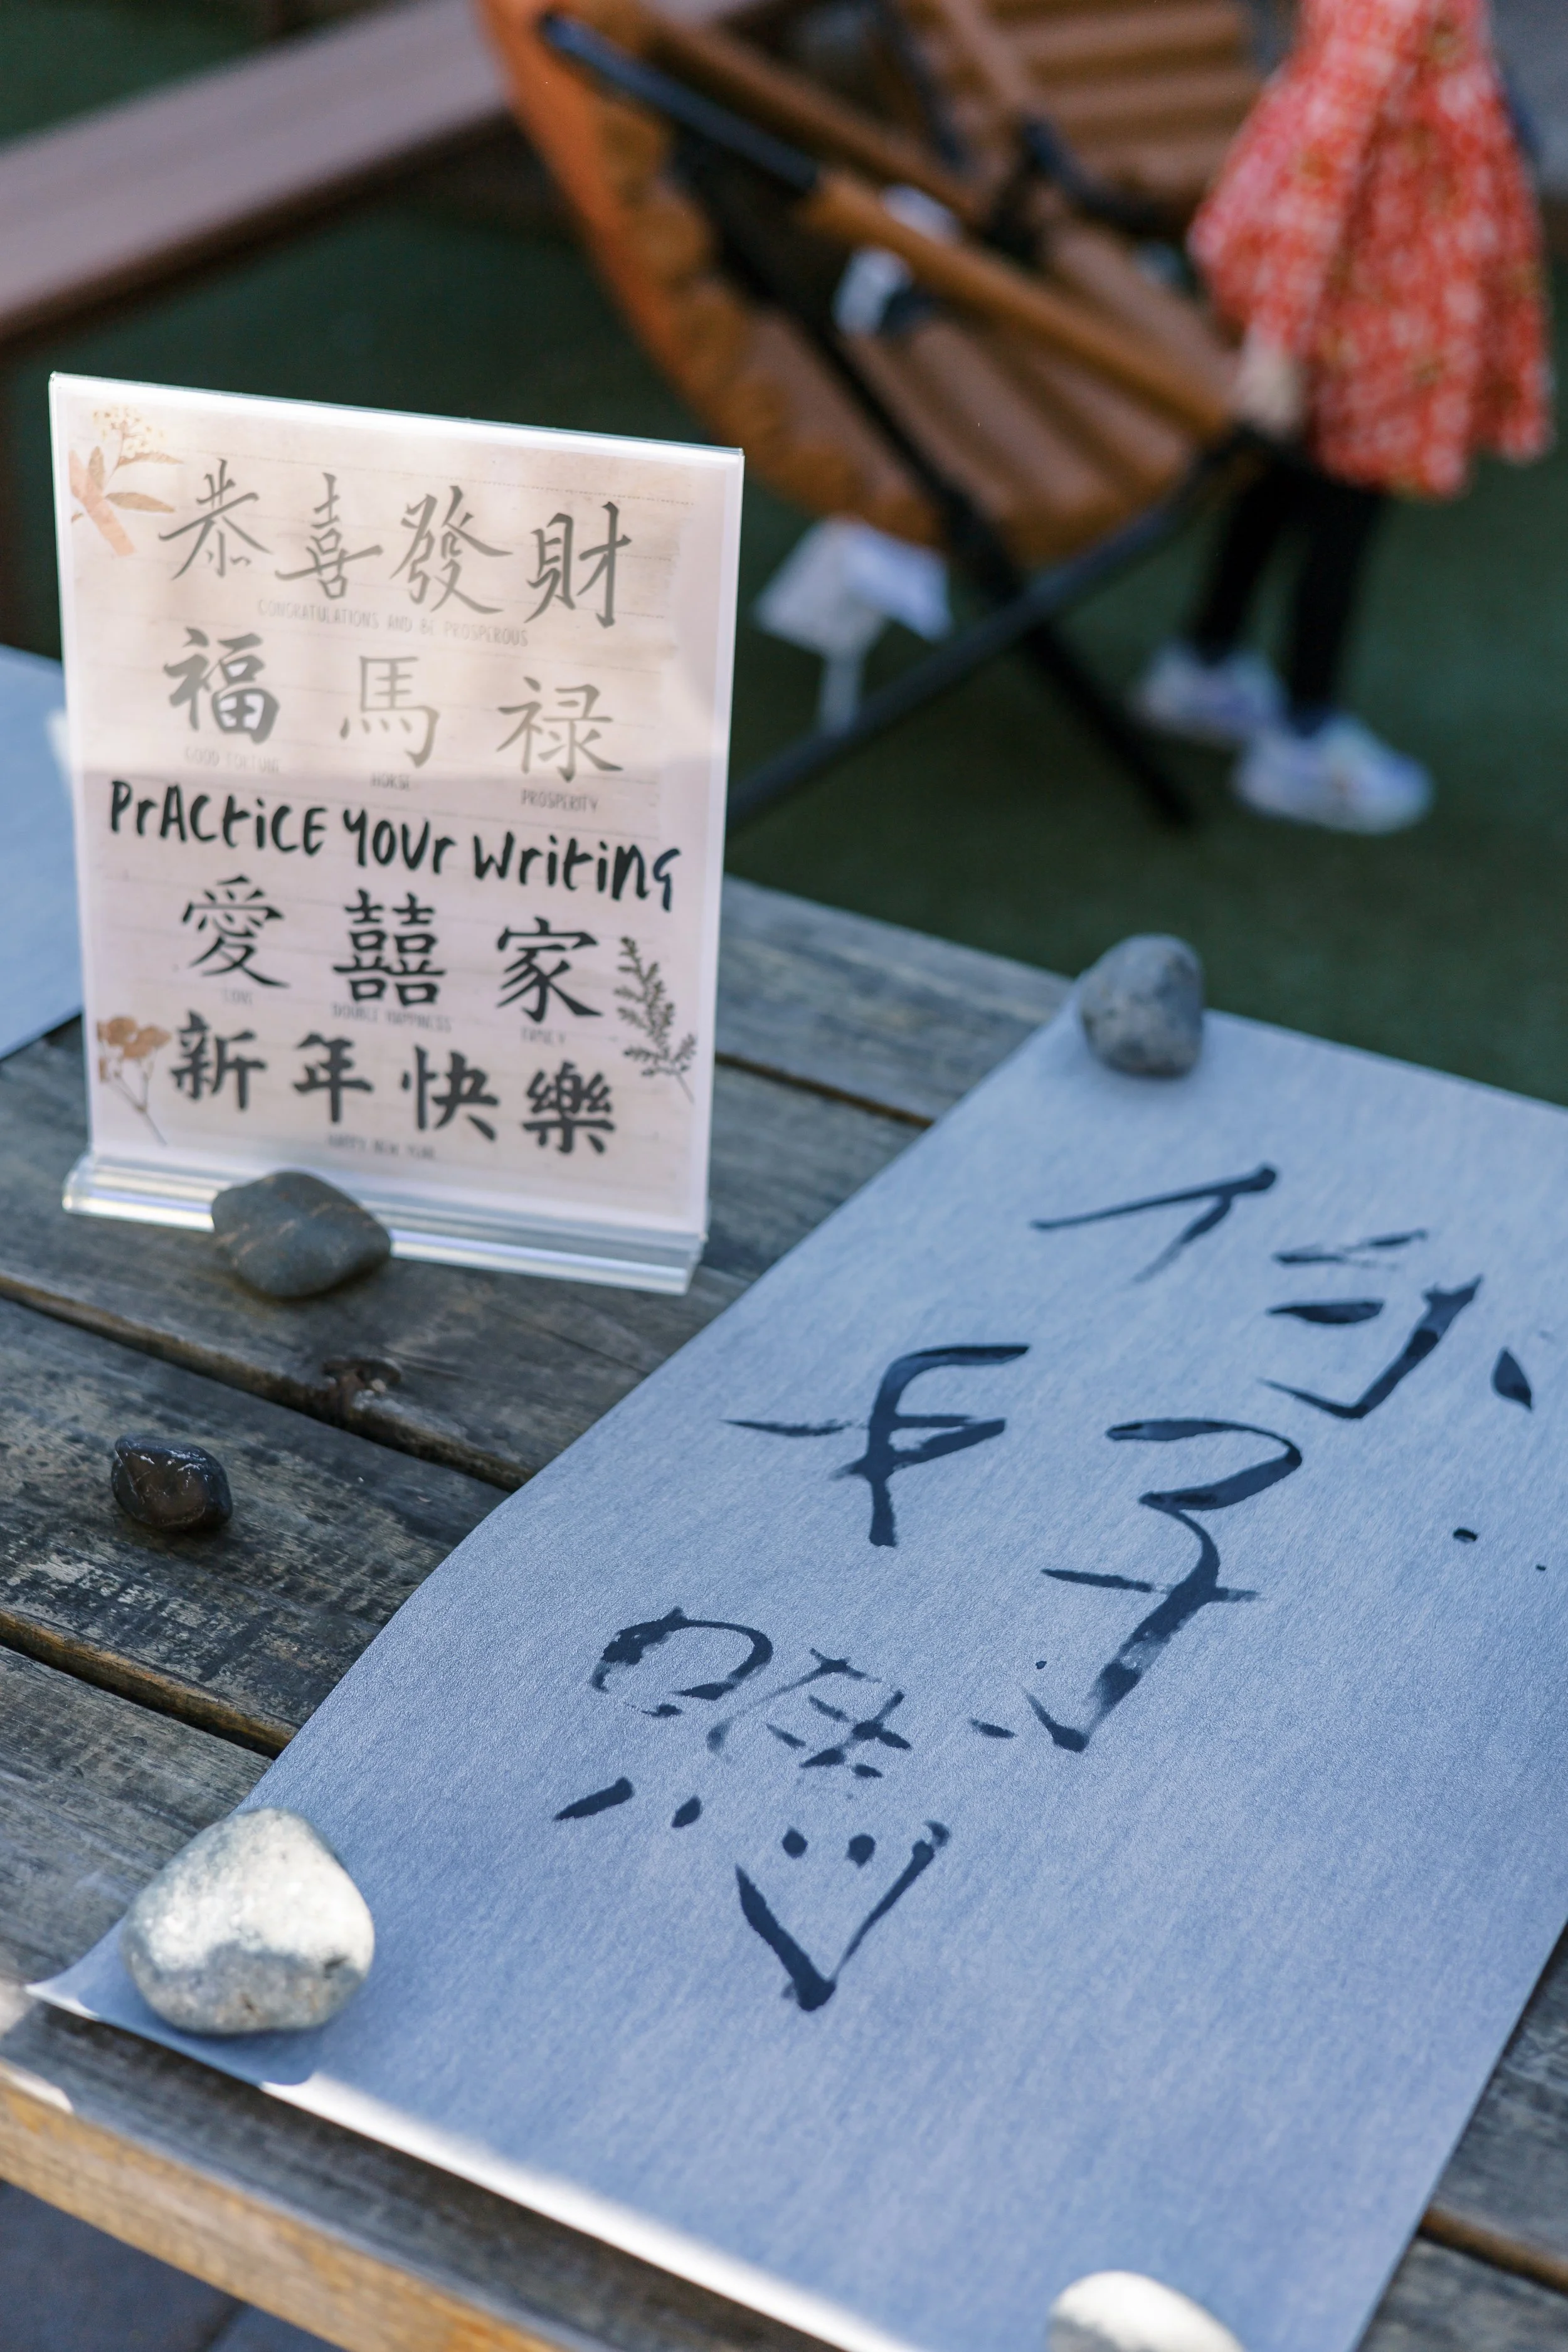 恭喜發財
CONGRATULATIONS AND BE PROSPEROUS
福 馬 禄
GOOD FORTUNE HORSE PROSPERITY
PrACtiCE YOUr Writing
愛 囍 家
LOVE DOUBLE HAPPINESS FAMILY
新年快樂
HAPPY NEW YEAR
你
好